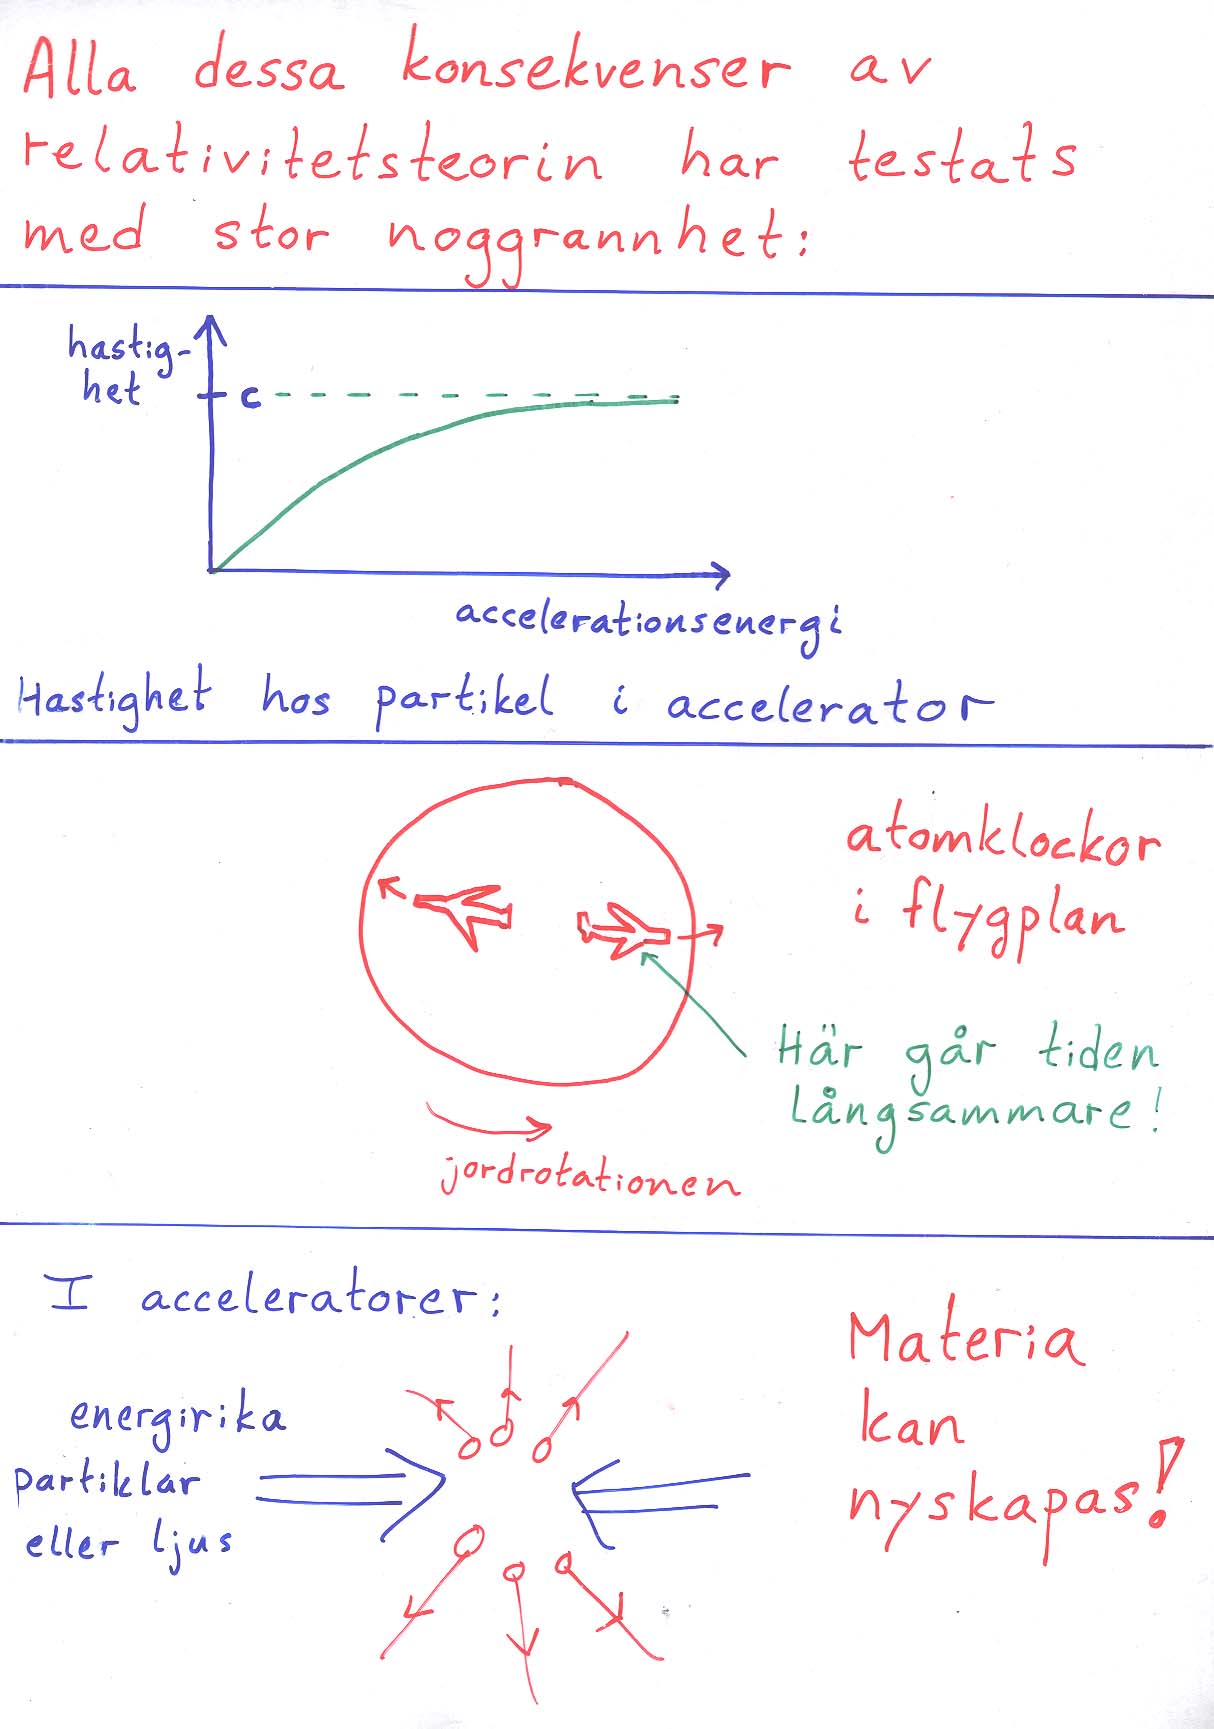 Alla dessa konsekvenser av
relativitetsteorin har testats
med stor noggrannhet:
hastig-
het
c
accelerationsenergi
Hastighet hos partikel i accelerator
atomklockor
i flygplan
Här går tiden
långsammare!
jordrotationen
I acceleratorer:
energirika
partiklar
eller ljus
Materia
kan
nyskapas!